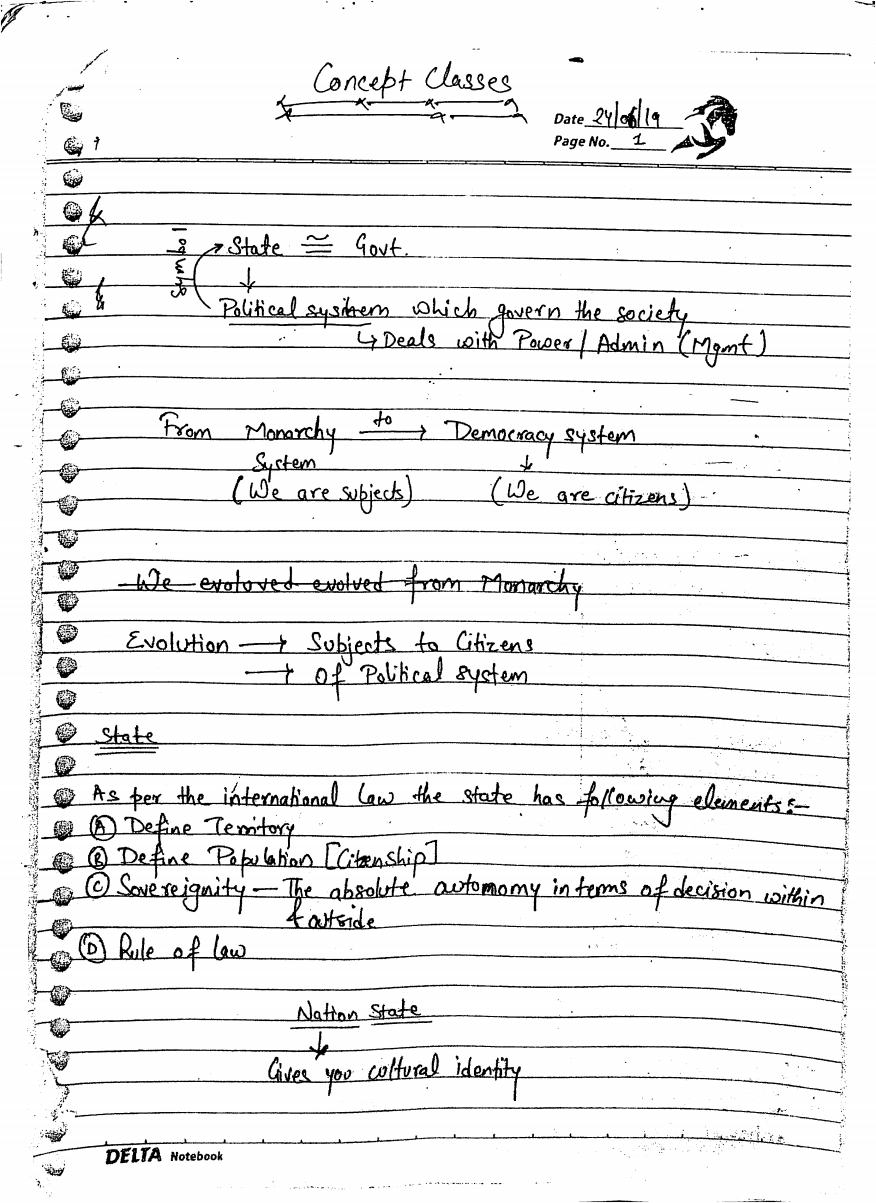 Concept Classes
Date 24/06/19
Page No. 1
State ≅ Govt.
↓
Political system which govern the society
↳ Deals with Power / Admin (Mgmt)
From Monarchy to → Democracy system
System ↓
(We are subjects) (We are citizens)
We evoloved evolved from Monarchy
Evolution → Subjects to Citizens
→ Of Political system
State
As per the international law the state has following elements:-
(A) Define Territory
(B) Define Population [Citenship]
(C) Sovereignity – The absolute automomy in terms of decision within
& outside
(D) Rule of law
Nation State
↓
Gives you cultural identity
DELTA Notebook